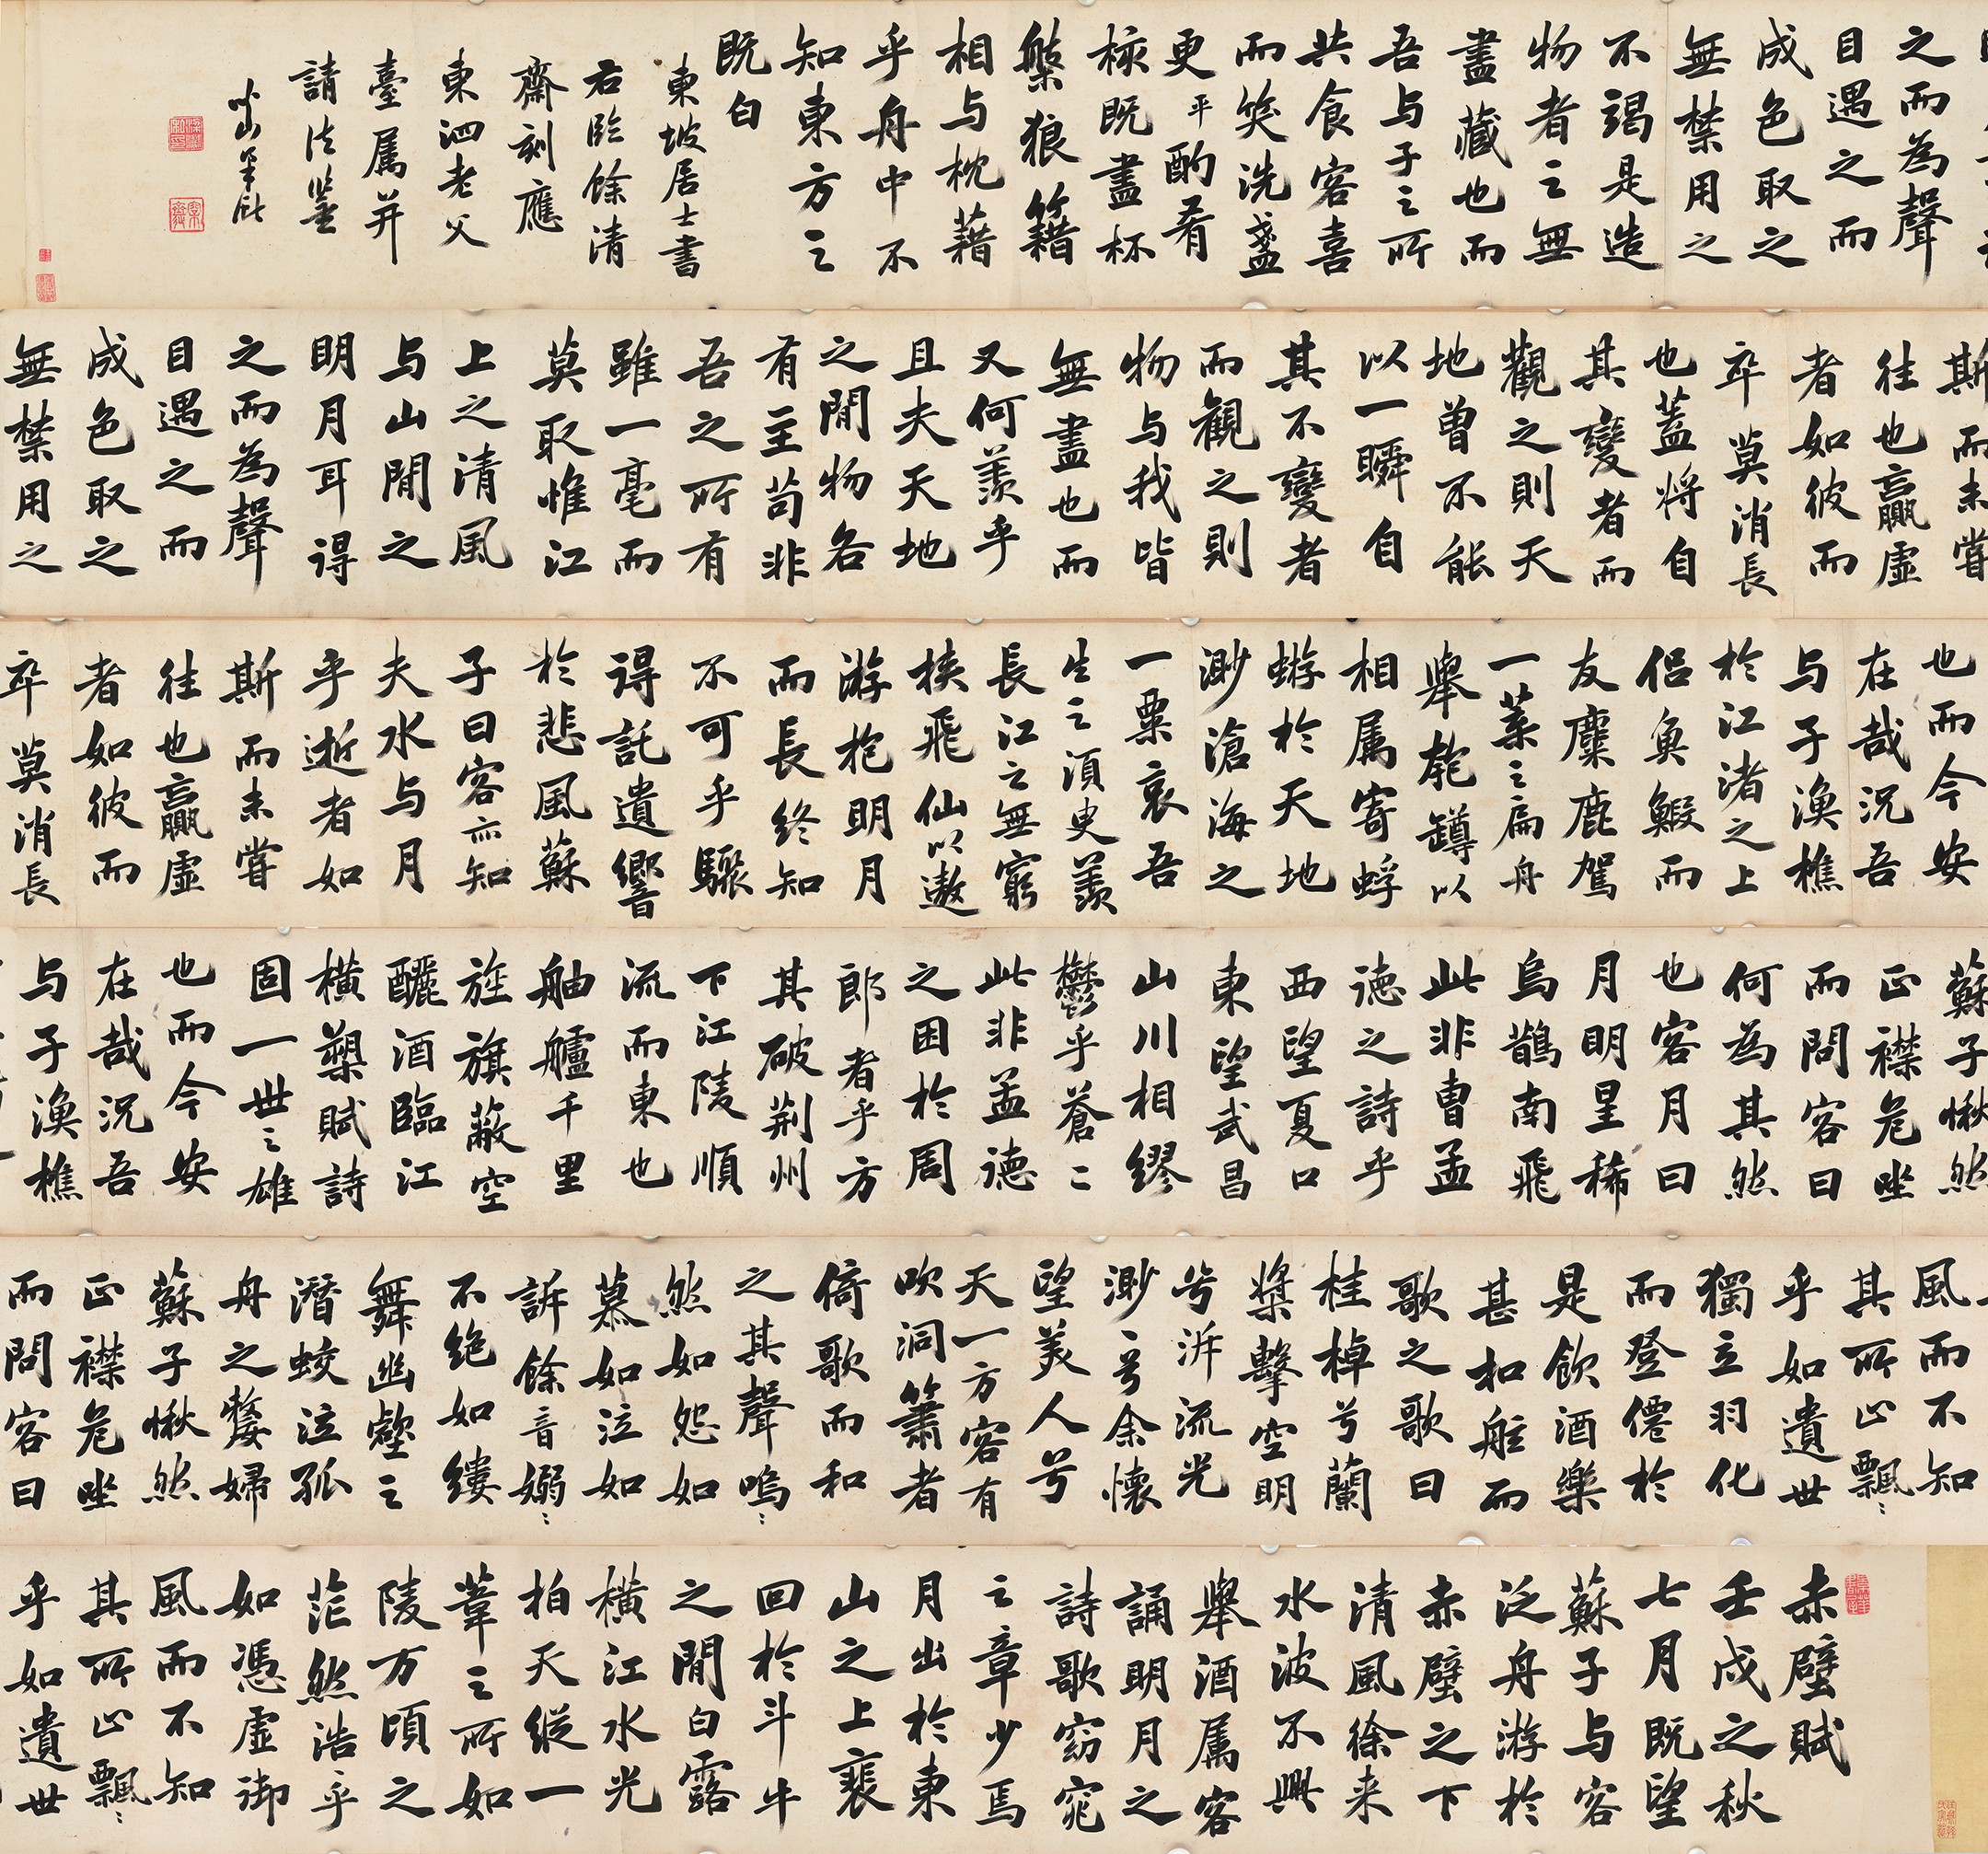 赤壁賦
壬戌之秋
七月既望
蘇子与客
泛舟游於
赤壁之下
清風徐来
水波不興
舉酒属客
誦明月之
詩歌窈窕
之章少焉
月出於東
山之上裴
回於斗牛
之間白露
横江水光
拍天縱一
葦之所如
陵万頃之
茫然浩乎
如憑虚御
風而不知
其所止飄〻
乎如遺世
風而不知
其所止飄〻
乎如遺世
獨立羽化
而登僊於
是飲酒樂
甚扣舷而
歌之歌曰
桂棹兮蘭
槳擊空明
兮泝流光
渺〻兮余懷
望美人兮
天一方客有
吹洞簫者
倚歌而和
之其聲嗚〻
然如怨如
慕如泣如
訴餘音嫋〻
不絶如縷
舞幽壑之
潛蛟泣孤
舟之嫠婦
蘇子愀然
正襟危坐
而問客曰
蘇子愀然
正襟危坐
而問客曰
何為其然
也客月曰
月明星稀
烏鵲南飛
此非曹孟
德之詩乎
西望夏口
東望武昌
山川相繆
鬱乎蒼〻
此非孟德
之困於周
郎者乎方
其破荆州
下江陵順
流而東也
舳艫千里
旌旗蔽空
釃酒臨江
横槊賦詩
固一世之雄
也而今安
在哉況吾
与子漁樵
也而今安
在哉況吾
与子漁樵
於江渚之上
侣魚鰕而
友麋鹿駕
一葉之扁舟
舉匏罇以
相属寄蜉
蝣於天地
渺滄海之
一粟哀吾
生之須臾羨
長江之無窮
挟飛仙以遨
游抱明月
而長終知
不可乎驟
得託遺響
於悲風蘇
子曰客亦知
夫水与月
乎逝者如
斯而未嘗
往也贏虚
者如彼而
卒莫消長
斯而未嘗
往也贏虚
者如彼而
卒莫消長
也蓋將自
其變者而
觀之則天
地曾不能
以一瞬自
其不變者
而觀之則
物与我皆
無盡也而
又何羨乎
且夫天地
之閒物各
有主苟非
吾之所有
雖一毫而
莫取惟江
上之清風
与山閒之
明月耳得
之而為聲
目遇之而
成色取之
無禁用之
之而為聲
目遇之而
成色取之
無禁用之
不竭是造
物者之無
盡藏也而
吾与子之所
共食客喜
而笑洗盞
更平酌肴
核既盡杯
槃狼籍
相与枕藉
乎舟中不
知東方之
既白
東坡居士書
右臨餘清
齋刻應
東泗老父
臺属并
請法鑒